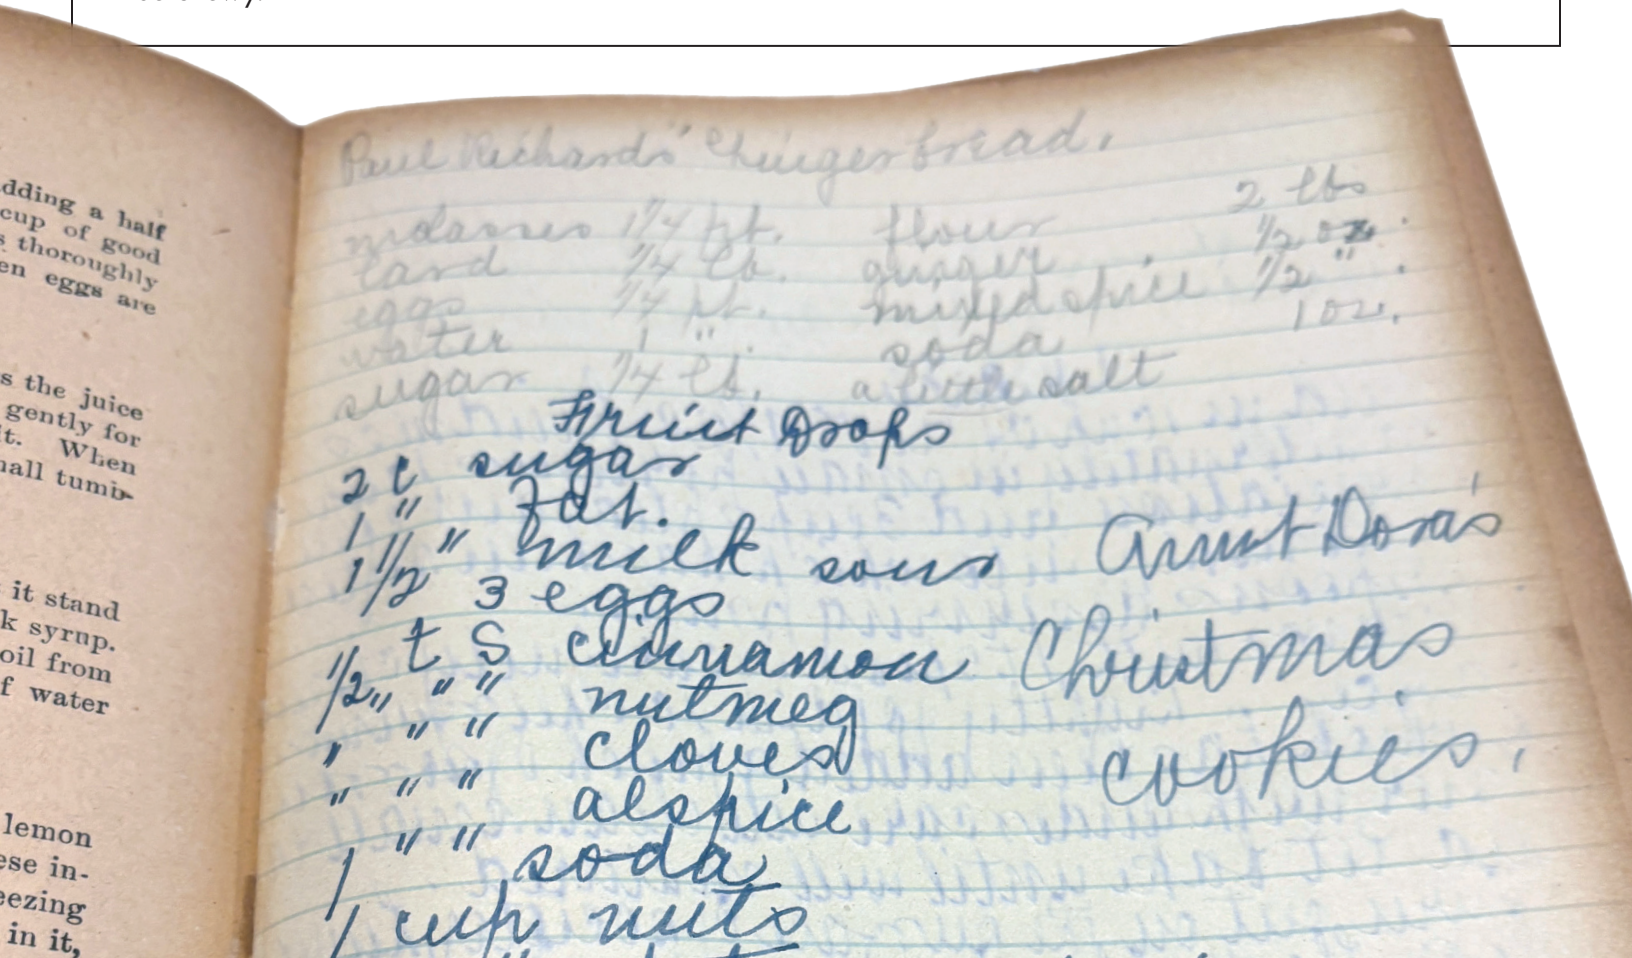 dding a half
cup of good
s thoroughly
en eggs are
s the juice
gently for
it. When
nall tumb-
it stand
k syrup.
oil from
f water
lemon
ese in-
eezing
in it,
Paul Richards' Ginger bread.
molasses 1/4 pt. flour 2 lbs
lard 1/4 lb. ginger 1/2 oz.
eggs 1/4 pt. mixed spice 1/2 " .
water 1 ". soda 1 oz.
sugar 1/4 lb. a little salt
Fruit Drops
2 c sugar
1 " Fat.
1 1/2 " milk sour
3 eggs
1/2 t S cinnamon
1/2 " " " nutmeg
" " " cloves
" " " alspice
1 " " soda
1 cup nuts
Aunt Dora's
Christmas
cookies.